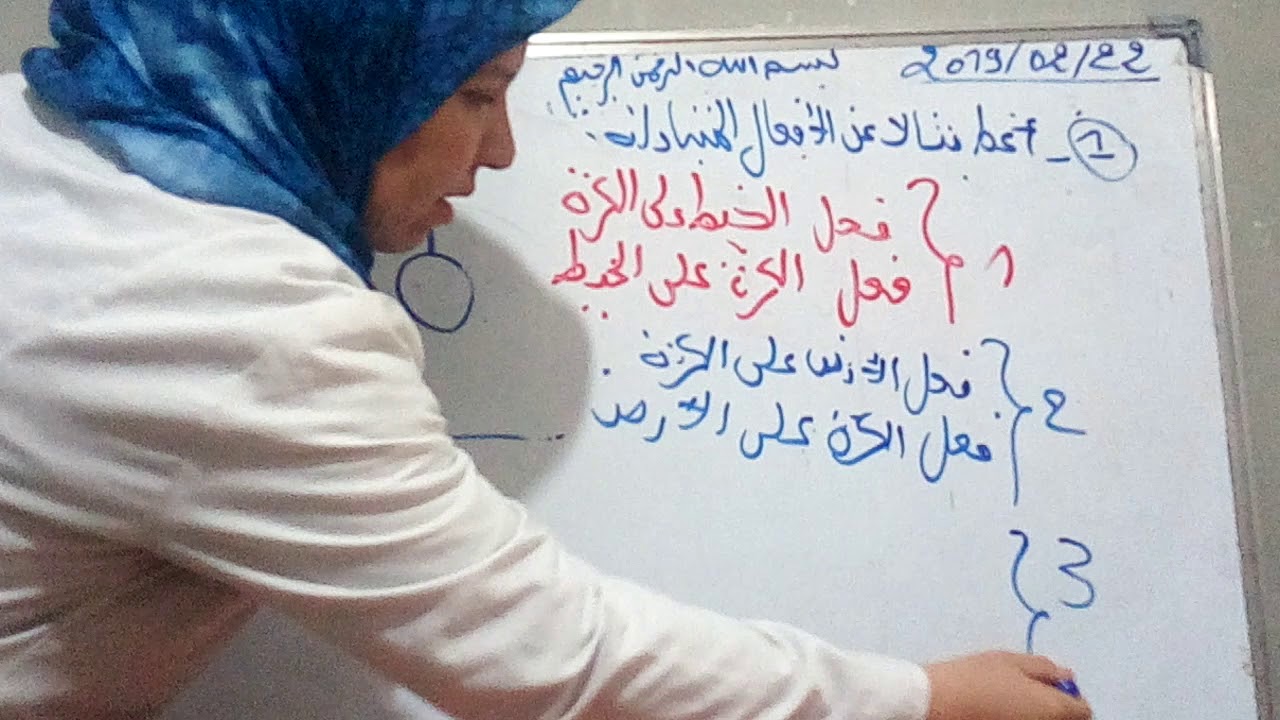 2019/02/22
بسم الله الرحمن الرحيم
1 - أعط مثالا عن الأفعال المتبادلة:
1 { فعل الخيط على الكرة
فعل الكرة على الخيط
2 { فعل الأرض على الكرة.
فعل الكرة على الأرض
3 {